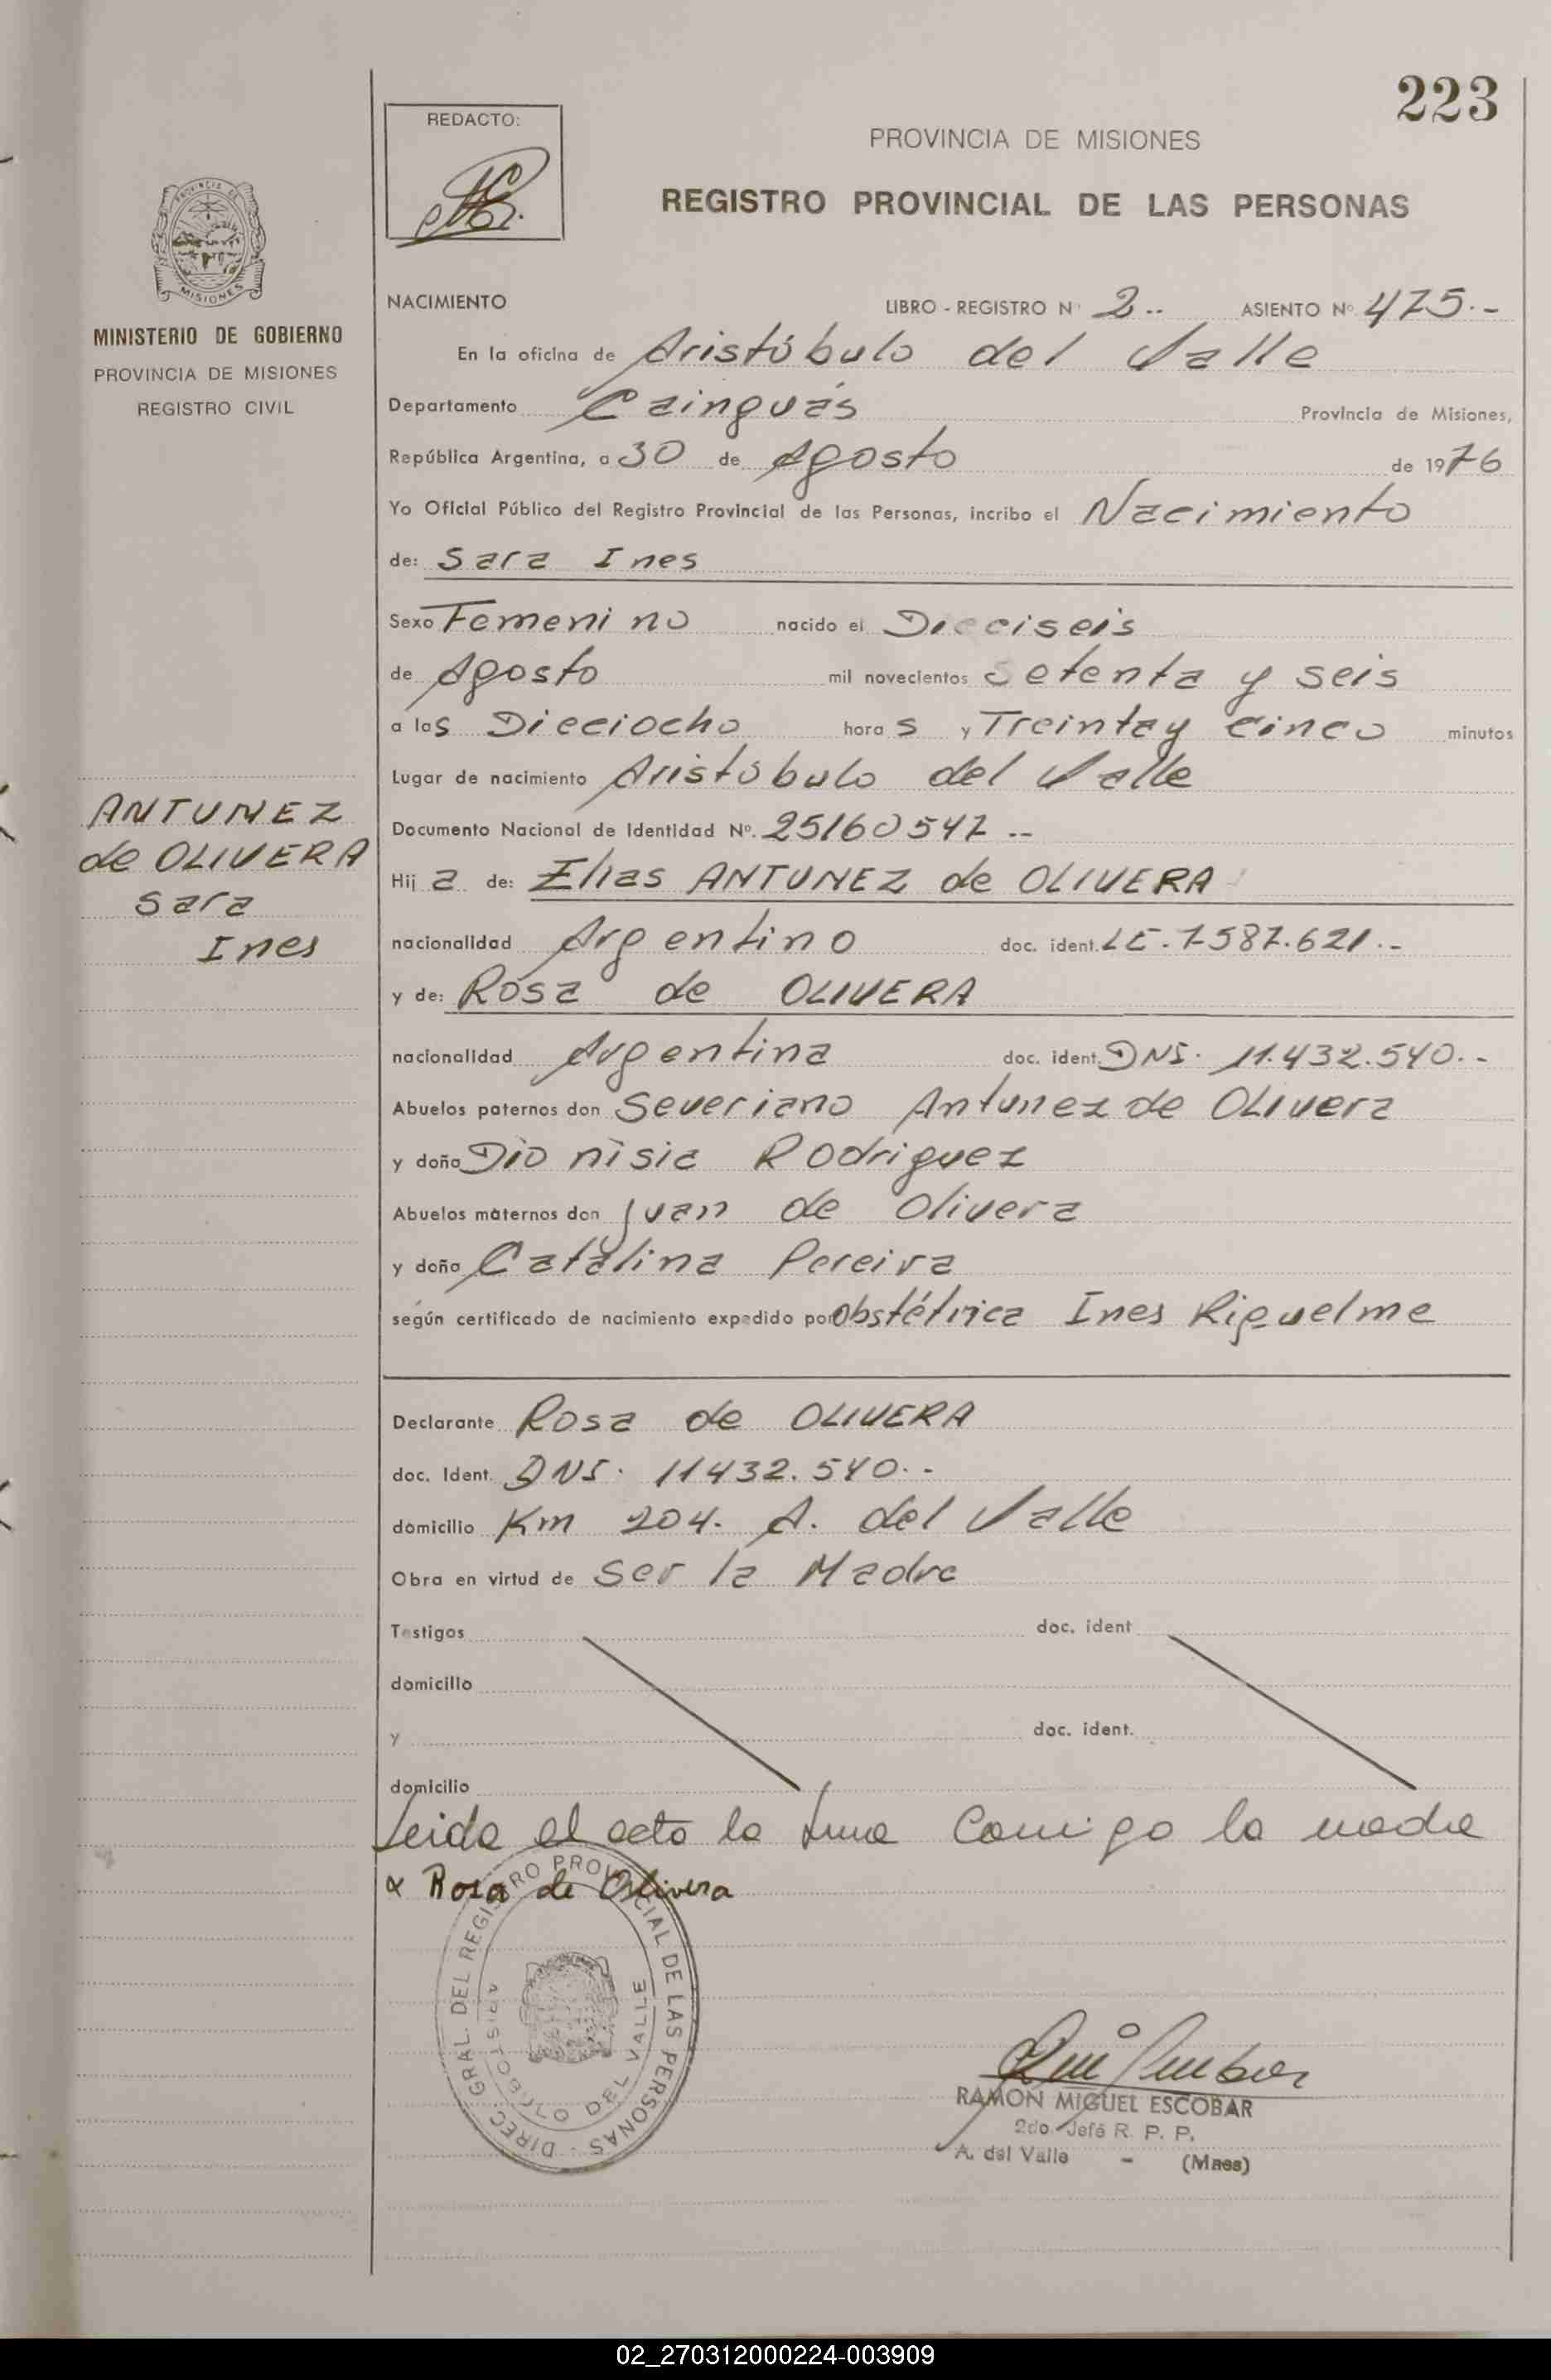 223
REDACTO:
PROVINCIA DE MISIONES
REGISTRO PROVINCIAL DE LAS PERSONAS
PROVINCIA DE
MISIONES
MINISTERIO DE GOBIERNO
PROVINCIA DE MISIONES
REGISTRO CIVIL
NACIMIENTO LIBRO - REGISTRO Nº 2.. ASIENTO Nº 475.-
En la oficina de Aristóbulo del Valle
Departamento Cainguás Provincia de Misiones,
República Argentina, a 30 de Agosto de 1976
Yo Oficial Público del Registro Provincial de las Personas, incribo el Nacimiento
de: Sara Ines
Sexo Femenino nacido el Dieciseis
de Agosto mil novecientos setenta y seis
a las Dieciocho horas y Treinta y cinco minutos
Lugar de nacimiento Aristóbulo del Valle
ANTUNEZ
de OLIVERA
Sara
Ines
Documento Nacional de Identidad Nº. 25160547 --
Hija de: Elias ANTUNEZ de OLIVERA
nacionalidad Argentino doc. ident. LE. 7587.621.-
y de: Rosa de OLIVERA
nacionalidad Argentina doc. ident. DNI. 11.432.540.--
Abuelos paternos don Severiano Antunez de Olivera
y doña Dionisia Rodriguez
Abuelos maternos don Juan de Olivera
y doña Catalina Pereira
según certificado de nacimiento expedido por Obstétrica Ines Riquelme
Declarante Rosa de OLIVERA
doc. Ident. DNI. 11432.540.--
domicilio Km 204. A. del Valle
Obra en virtud de ser la Madre
Testigos doc. ident
domicilio
y doc. ident.
domicilio
Leida el acta la firma Comigo la madre
x Rosa de Olivera
DIREC. GRAL. DEL REGISTRO PROVINCIAL DE LAS PERSONAS -
ARISTOBULO DEL VALLE
RAMON MIGUEL ESCOBAR
2do. Jefe R. P. P.
A. del Valle - (Mnes)
02_270312000224-003909